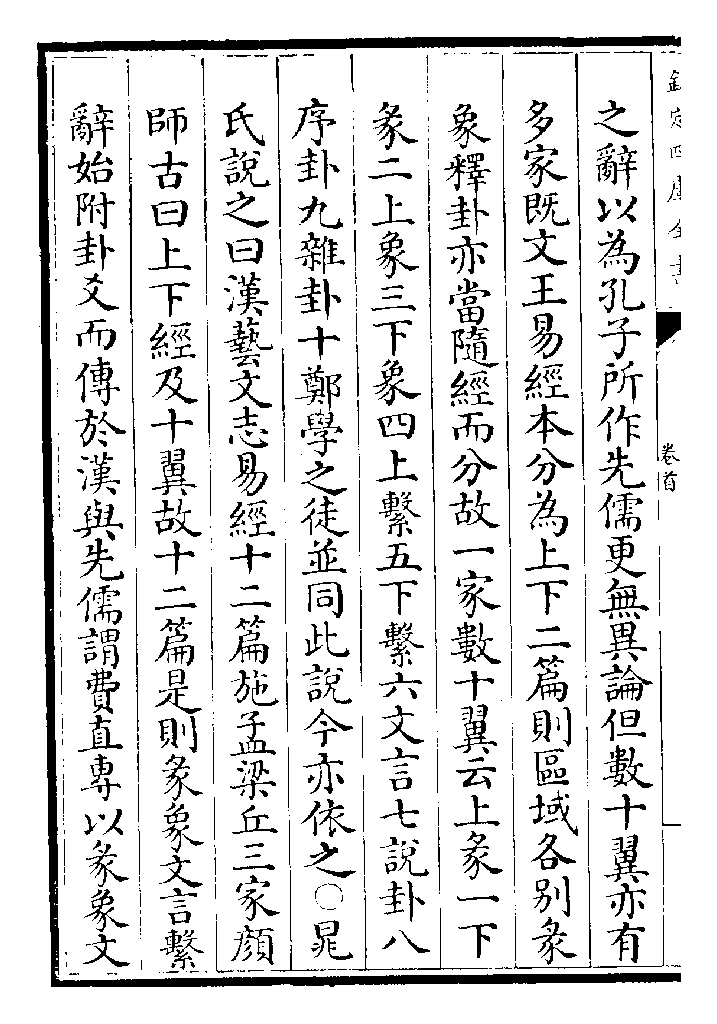 欽定四庫全書
卷首
之辭以為孔子所作先儒更無異論但數十翼亦有
多家既文王易經本分為上下二篇則區域各別彖
象釋卦亦當隨經而分故一家數十翼云上彖一下
彖二上象三下象四上繫五下繫六文言七說卦八
序卦九雜卦十鄭學之徒並同此說今亦依之〇晁
氏說之曰漢藝文志易經十二篇施孟梁丘三家顏
師古曰上下經及十翼故十二篇是則彖象文言繫
辭始附卦爻而傳於漢與先儒謂費直專以彖象文